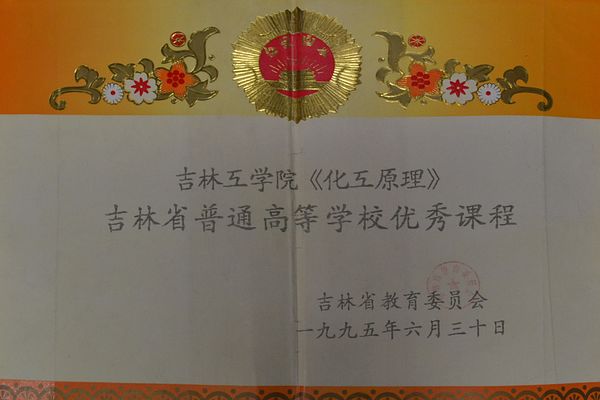 吉林工学院《化工原理》
吉林省普通高等学校优秀课程
吉林省教育委员会
一九九五年六月三十日